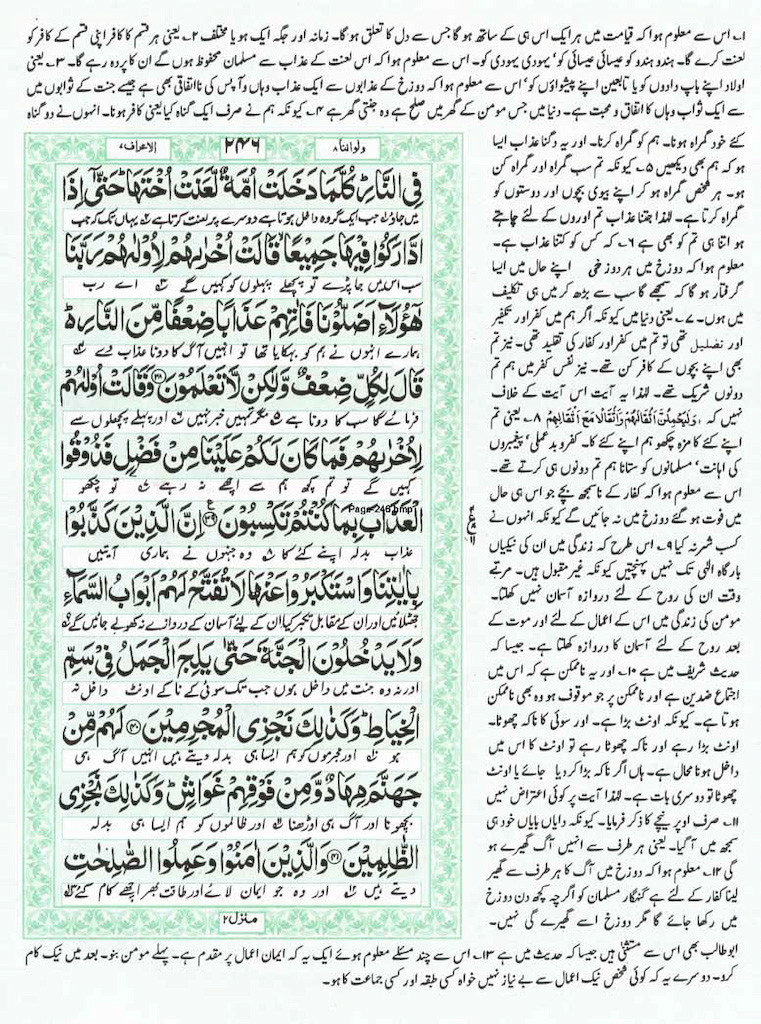 ۱۔ اس سے معلوم ہوا کہ قیامت میں ہر ایک اس ہی کے ساتھ ہو گا جس سے دل کا تعلق ہو گا۔ زمانہ اور جگہ ایک ہو یا مختلف ۲۔ یعنی ہر قسم کا کافر اپنی قسم کے کافر کو
لعنت کرے گا۔ ہندو ہندو کو عیسائی عیسائی کو' یہودی یہودی کو۔ اس سے معلوم ہوا کہ اس لعنت کے عذاب سے مسلمان محفوظ ہوں گے ان کا پردہ رہے گا۔ ۳۔ یعنی
اولاد اپنے باپ دادوں کو یا تابعین اپنے پیشواؤں کو' اس سے معلوم ہوا کہ دوزخ کے عذابوں سے ایک عذاب وہاں آپس کی نااتفاقی بھی ہے جیسے جنت کے ثوابوں میں
سے ایک ثواب وہاں کا اتفاق و محبت ہے۔ دنیا میں جس مومن کے گھر میں صلح ہے وہ جنتی گھر ہے ۴۔ کیونکہ ہم نے صرف ایک گناہ کیا یعنی کافر ہونا۔ انہوں نے دو گناہ
کئے خود گمراہ ہونا۔ ہم کو گمراہ کرنا۔ اور یہ دگنا عذاب ایسا
ہو کہ ہم بھی دیکھیں ۵۔ کیونکہ تم سب گمراہ اور گمراہ کن
ہو۔ ہر شخص گمراہ ہو کر اپنے بیوی بچوں اور دوستوں کو
گمراہ کرتا ہے۔ لہٰذا جتنا عذاب تم اوروں کے لئے چاہتے
ہو اتنا ہی تم کو بھی ہے ۶۔ کہ کس کو کتنا عذاب ہے۔
معلوم ہوا کہ دوزخ میں ہر دوزخی اپنے حال میں ایسا
گرفتار ہو گا کہ سمجھے گا سب سے بڑھ کر میں ہی تکلیف
میں ہوں۔ ۷۔ یعنی دنیا میں کیونکہ اگر ہم میں کفر اور تکفیر
اور تضلیل تھی تو تم میں کفر اور کفار کی تقلید تھی۔ نیز تم
بھی اپنے بچوں کے کافر کن تھے۔ نیز نفس کفر میں ہم تم
دونوں شریک تھے۔ لہٰذا یہ آیت اس آیت کے خلاف
نہیں کہ وَلَيَحْمِلُنَّ اَثْقَالَهُمْ وَاَثْقَالًا مَعَ اَثْقَالِهِمْ ۸۔ یعنی تم
اپنے کئے کا مزہ چکھو ہم اپنے کئے کا۔ کفر و بدعملی' پیغمبروں
کی اہانت' مسلمانوں کو ستانا ہم تم دونوں ہی کرتے تھے۔
اس سے معلوم ہوا کہ کفار کے ناسمجھ بچے جو اسی حال
میں فوت ہو گئے دوزخ میں نہ جائیں گے کیونکہ انہوں نے
کسب شر نہ کیا ۹۔ اس طرح کہ زندگی میں ان کی نیکیاں
بارگاہ الٰہی تک نہیں پہنچتیں کیونکہ غیر مقبول ہیں۔ مرتے
وقت ان کی روح کے لئے دروازہ آسمان نہیں کھلتا۔
مومن کی زندگی میں اس کے اعمال کے لئے اور موت کے
بعد روح کے لئے آسمان کا دروازہ کھلتا ہے۔ جیسا کہ
حدیث شریف میں ہے ۱۰۔ اور یہ ناممکن ہے کہ اس میں
اجتماع ضدین ہے اور ناممکن پر جو موقوف ہو وہ بھی ناممکن
ہوتا ہے۔ کیونکہ اونٹ بڑا ہے۔ اور سوئی کا ناکہ چھوٹا۔
اونٹ بڑا رہے اور ناکہ چھوٹا رہے تو اونٹ کا اس میں
داخل ہونا محال ہے۔ ہاں اگر ناکہ بڑا کر دیا جائے یا اونٹ
چھوٹا تو دوسری بات ہے۔ لہٰذا آیت پر کوئی اعتراض نہیں
۱۱۔ صرف اوپر نیچے کا ذکر فرمایا۔ کیونکہ دایاں بایاں خود ہی
سمجھ میں آ گیا۔ یعنی ہر طرف سے انہیں آگ گھیرے ہو
گی ۱۲۔ معلوم ہوا کہ دوزخ میں آگ کا ہر طرف سے گھیر
لینا کفار کے لئے ہے گنہگار مسلمان کو اگرچہ کچھ دن دوزخ
میں رکھا جائے گا مگر دوزخ اسے گھیرے گی نہیں۔
ولواننا۸
۲۴۶
الاعراف۷
فِی النَّارِ کُلَّمَا دَخَلَتْ اُمَّةٌ لَّعَنَتْ اُخْتَهَا حَتّٰۤی اِذَا
میں جاؤ جب ایک گروہ داخل ہوتا ہے دوسرے پر لعنت کرتا ہے یہاں تک کہ جب
ادَّارَکُوْا فِیْهَا جَمِیْعًا قَالَتْ اُخْرٰىهُمْ لِاُوْلٰىهُمْ رَبَّنَا
سب اس میں جا پڑے تو پچھلے پہلوں کو کہیں گے اے رب
هٰۤؤُلَآءِ اَضَلُّوْنَا فَاٰتِهِمْ عَذَابًا ضِعْفًا مِّنَ النَّارِ
ہمارے انہوں نے ہم کو بہکایا تھا تو انہیں آگ کا دونا عذاب دے
قَالَ لِکُلٍّ ضِعْفٌ وَّلٰکِنْ لَّا تَعْلَمُوْنَ ۳۸ وَقَالَتْ اُوْلٰىهُمْ
فرمائے گا سب کا دونا ہے مگر تمہیں خبر نہیں اور پہلے پچھلوں سے
لِاُخْرٰىهُمْ فَمَا کَانَ لَکُمْ عَلَیْنَا مِنْ فَضْلٍ فَذُوْقُوا
کہیں گے تو تم کچھ ہم سے اچھے نہ رہے تو چکھو
الْعَذَابَ بِمَا کُنْتُمْ تَکْسِبُوْنَ ۳۹ اِنَّ الَّذِیْنَ کَذَّبُوْا
Page-246.bmp
عذاب بدلہ اپنے کئے کا وہ جنہوں نے ہماری آیتیں
بِاٰیٰتِنَا وَاسْتَکْبَرُوْا عَنْهَا لَا تُفَتَّحُ لَهُمْ اَبْوَابُ السَّمَآءِ
جھٹلائیں اور ان کے مقابل تکبر کیا ان کے لئے آسمان کے دروازے نہ کھولے جائیں گے
وَلَا یَدْخُلُوْنَ الْجَنَّةَ حَتّٰی یَلِجَ الْجَمَلُ فِیْ سَمِّ
اور نہ وہ جنت میں داخل ہوں جب تک سوئی کے ناکے اونٹ داخل نہ
الْخِیَاطِ وَکَذٰلِكَ نَجْزِی الْمُجْرِمِیْنَ ۴۰ لَهُمْ مِّنْ
ہو اور مجرموں کو ہم ایسا ہی بدلہ دیتے ہیں انہیں آگ ہی
جَهَنَّمَ مِهَادٌ وَّمِنْ فَوْقِهِمْ غَوَاشٍ وَکَذٰلِكَ نَجْزِی
بچھونا اور آگ ہی اوڑھنا اور ظالموں کو ہم ایسا ہی بدلہ
الظّٰلِمِیْنَ ۴۱ وَالَّذِیْنَ اٰمَنُوْا وَعَمِلُوا الصّٰلِحٰتِ
دیتے ہیں اور وہ جو ایمان لائے اور طاقت بھر اچھے کام کئے
منزل۲
ابو طالب بھی اس سے مستثنیٰ ہیں جیسا کہ حدیث میں ہے ۱۳۔ اس سے چند مسئلے معلوم ہوئے ایک یہ کہ ایمان اعمال پر مقدم ہے۔ پہلے مومن بنو۔ بعد میں نیک کام
کرو۔ دوسرے یہ کہ کوئی شخص نیک اعمال سے بے نیاز نہیں خواہ کسی طبقہ اور کسی جماعت کا ہو۔